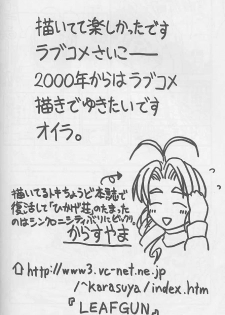 描いてて楽しかったです
ラブコメさいこ——
2000年からはラブコメ
描きでゆきたいです
オイラ。
描いてるトキちょうど本誌で
復活して「ひかげ荘」のたまった
のはシンクロニシティぶりにビックリ。
からすやま
⇧http://www3.vc-net.ne.jp
/~karasuya/index.htm
『LEAFGUN』